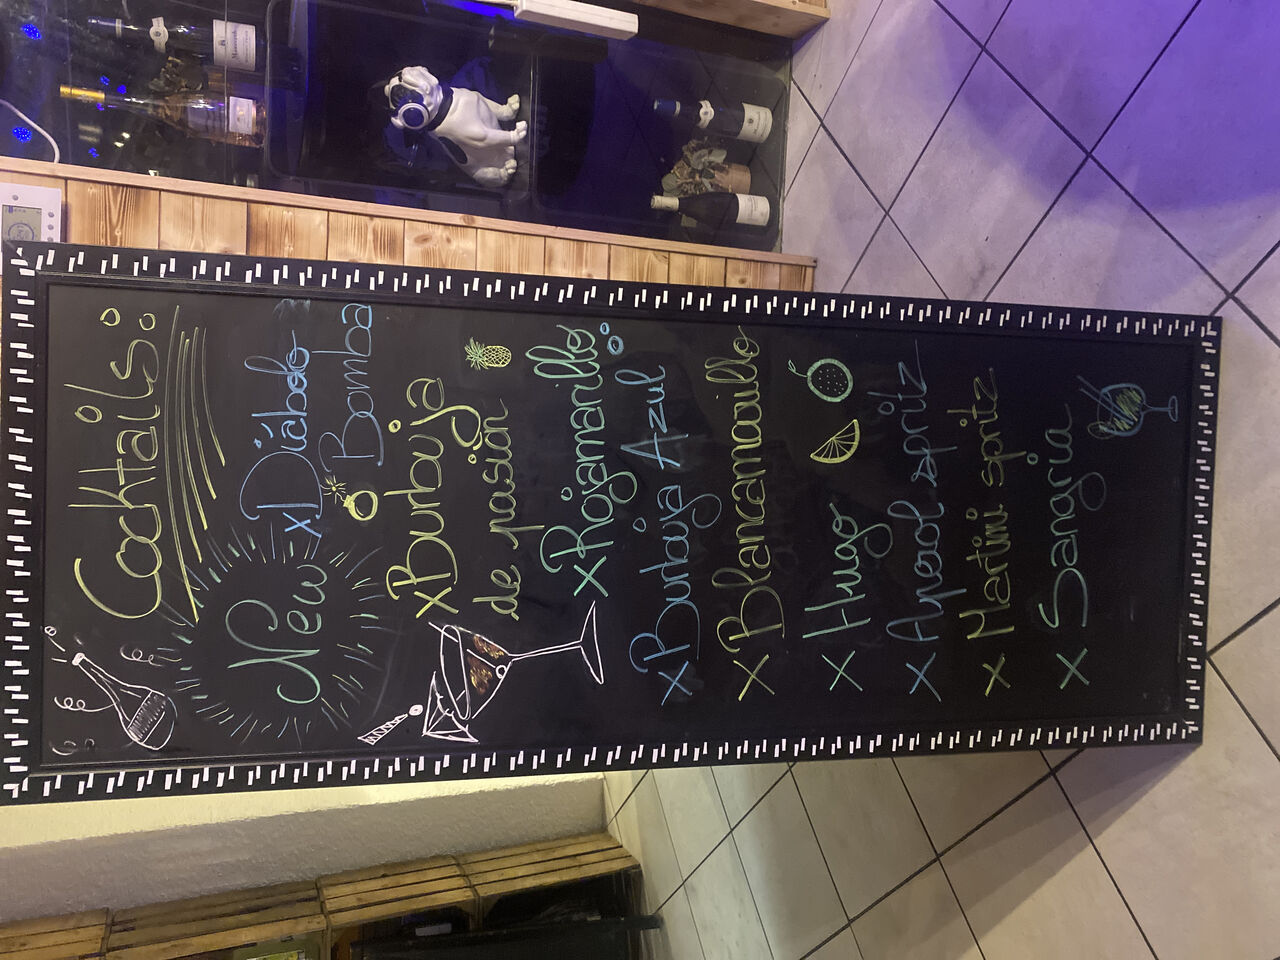 Cocktails:
New
x Diablo
Bomba
x Burbuja
de pasion
x Rojamarillo
x Burbuja Azul
x Blancamaullo
x Hugo
x Aperol spritz
x Martini spritz
x Sangria